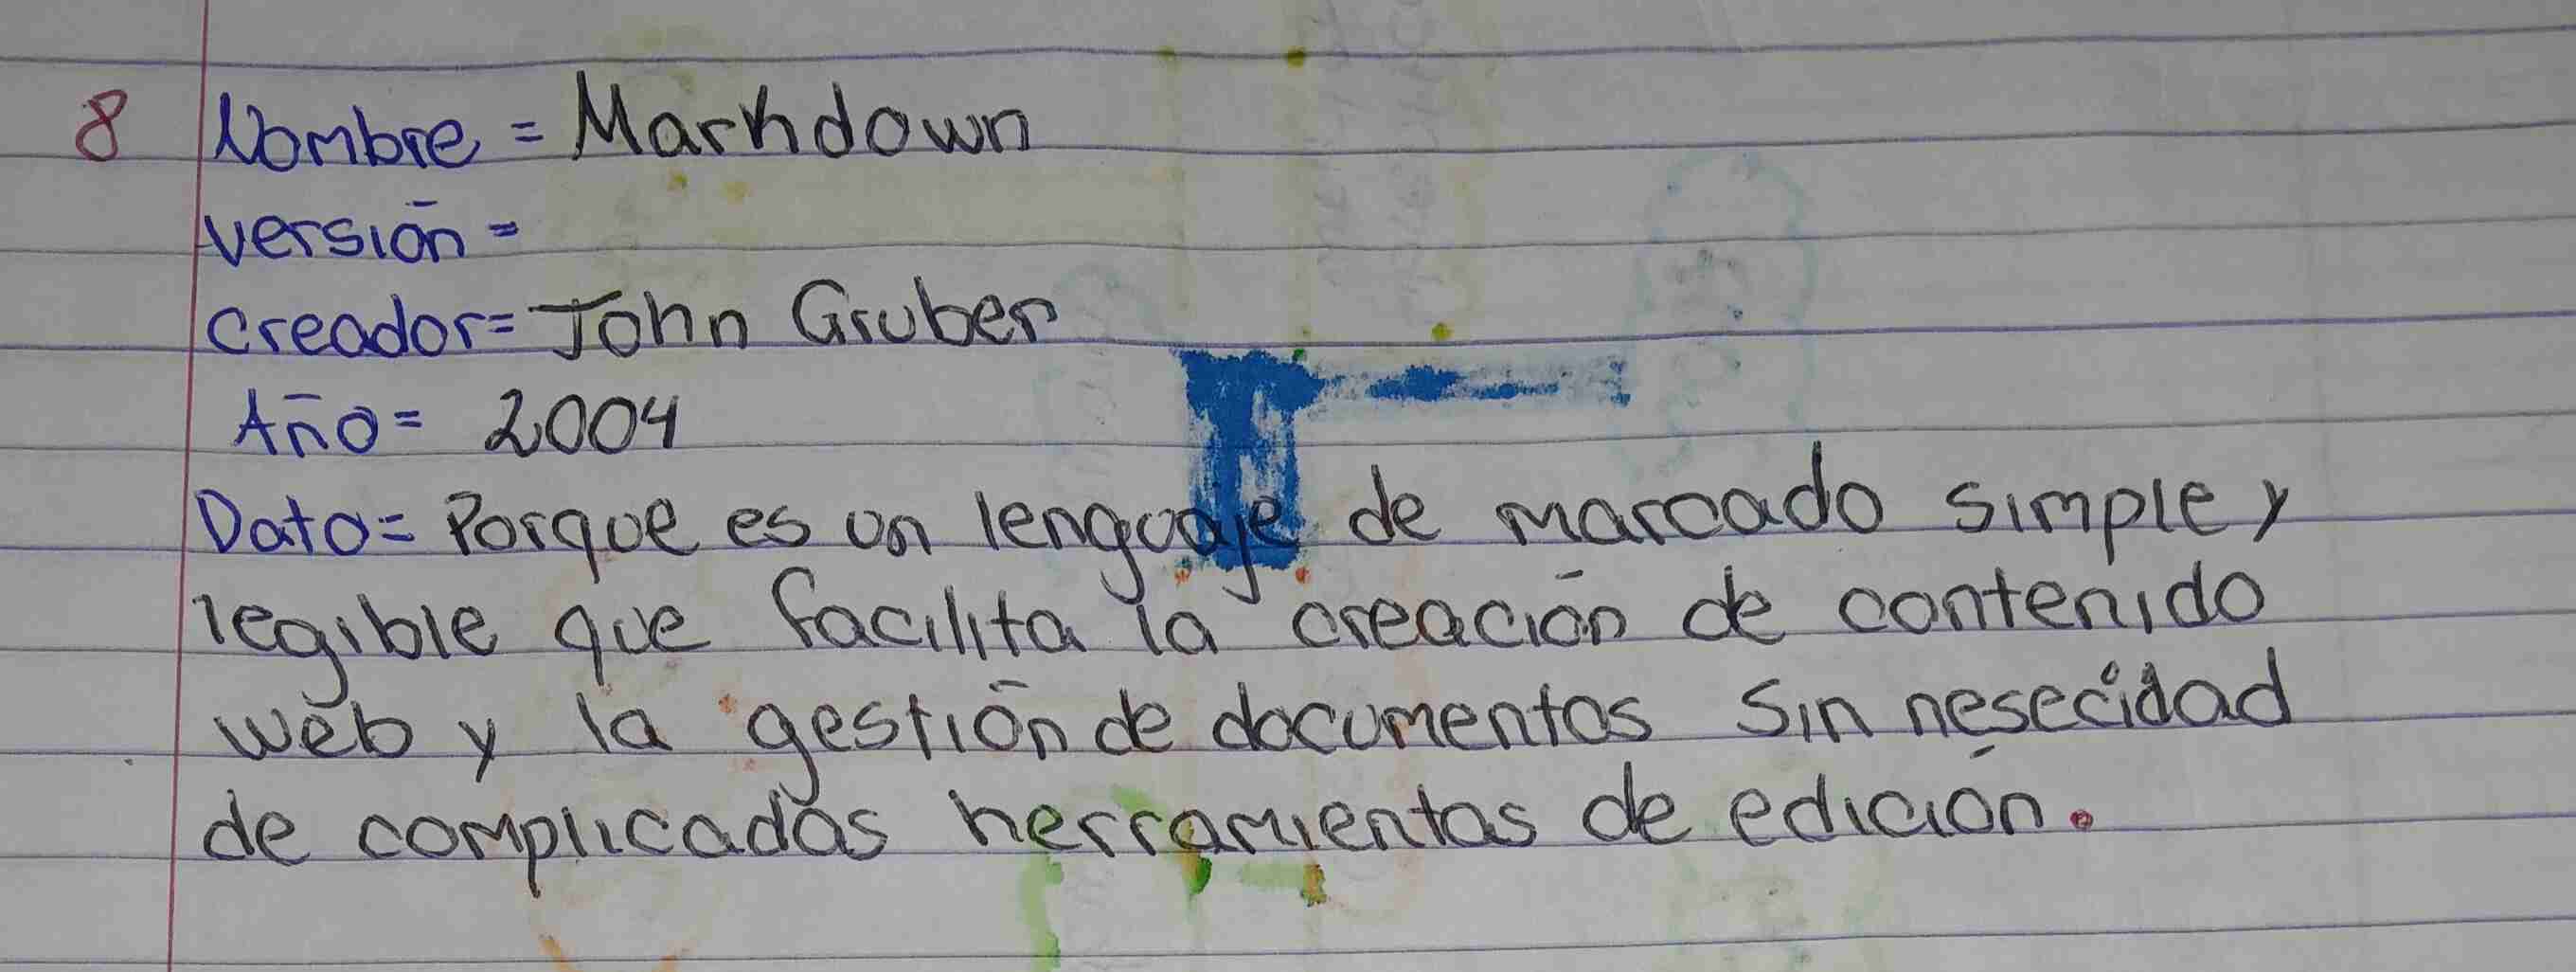 8 Nombre = Markdown
versión =
creador= John Gruber
Año= 2004
Dato= Porque es un lenguaje de marcado simple y
legible que facilita la creación de contenido
web y la gestión de documentos sin nesecidad
de complicadas herramientas de edición.